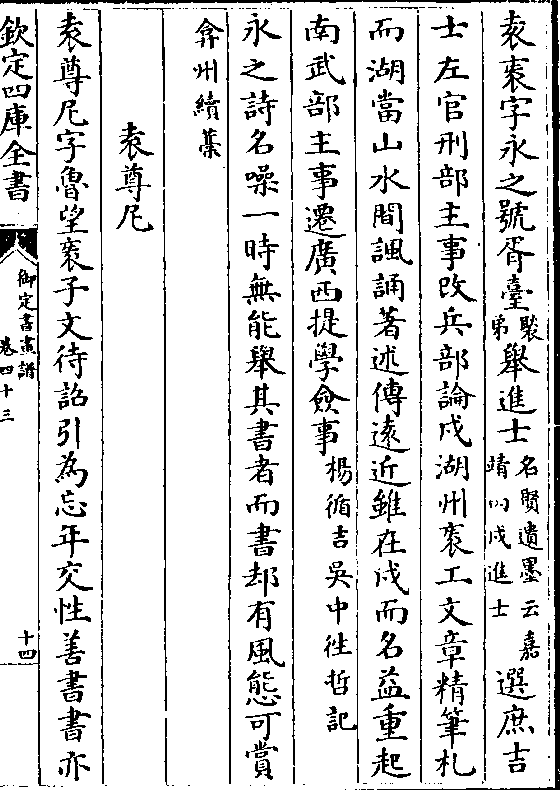 袁袠字永之號胥臺褧弟舉進士名賢遺墨云嘉靖丙戌進士選庶吉
士左官刑部主事改兵部論戍湖州袠工文章精筆札
而湖當山水間諷誦著述傳遠近雖在戍而名益重起
南武部主事遷廣西提學僉事楊循吉吳中徃哲記
永之詩名噪一時無能舉其書者而書却有風態可賞
弇州續藁
袁尊尼
袁尊尼字魯望袠子文待詔引為忘年交性善書書亦
欽定四庫全書
御定書畫譜
卷四十三
十四